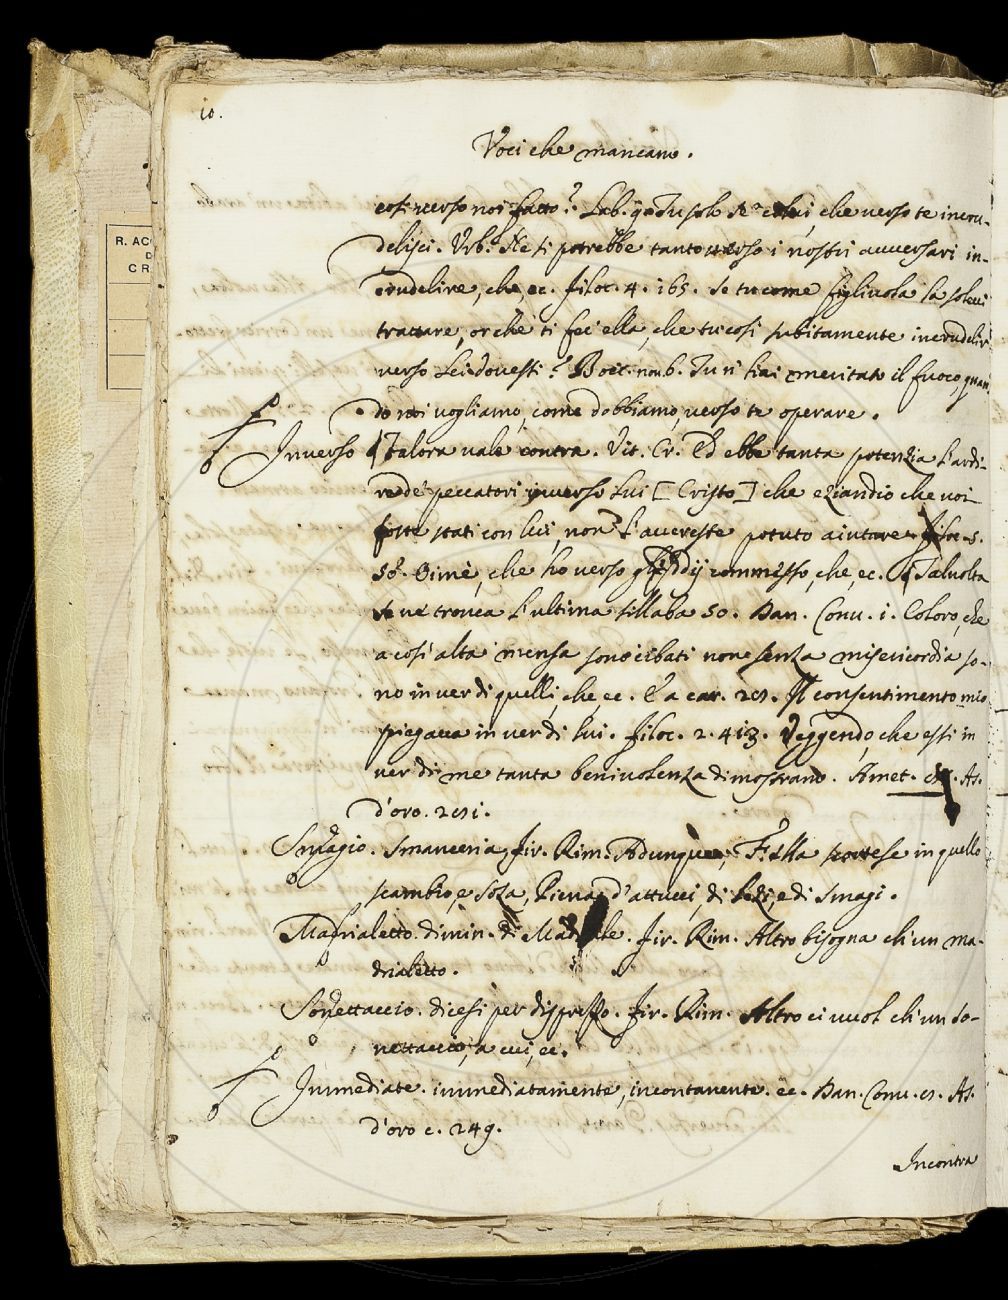 10.
Voci che mancano.
R. AC
D
CR
così verso noi fatto? Lab. Tu solo se' colui, che verso te incru-
delisci. Urb. Nè si potrebbe tanto verso i nostri avversari in-
crudelire, che, ec. Filoc. 4. 165. Se tu come figliuola la solevi
trattare, or che ti fec' ella, che tu così subitamente incrudelir
verso Lei dovesti? Boez. Tu n' hai meritato il fuoco, quan-
do noi vogliamo, come dobbiamo, verso te operare.
Inverso Talora vale contra. Vit. Cr. Ed ebbe tanta potenzia l'ardi-
re de' peccatori inverso Lui [Cristo] che eziandio che voi
foste stati con lui, non l'avereste potuto aiutare. Filoc. 5.
50. Oimè, che ho verso gl'Iddij commesso, che, ec. Talvolta
se ne tronca l'ultima sillaba so. Dan. Conv. 1. Coloro, che
a così alta mensa sono cibati non senza misericordia so-
no inver di quelli, che, ec. E a car. Il consentimento mio
piegava inver di lui. Filoc. 2. 413. Veggendo, che essi in
ver di me tanta benivolenza dimostrano. Amet. As.
d'oro.
Smagio. Smanceria, Fir. Rim. Adunque, Ella portese in quello
scambio, e Piena d'attucci, di lezi, e di smagi.
Madrialetto. dimin. di Fir. Rim. Altro bisogna ch'un ma-
drialetto.
Sonettaccio. dicesi per disprezzo. Fir. Rim. Altro ci vuol ch'un so-
nettaccio, a cui, ec.
Immediate. immediatamente, incontanente. ec. Dan. Conv. As.
d'oro c. 249.
Incontra